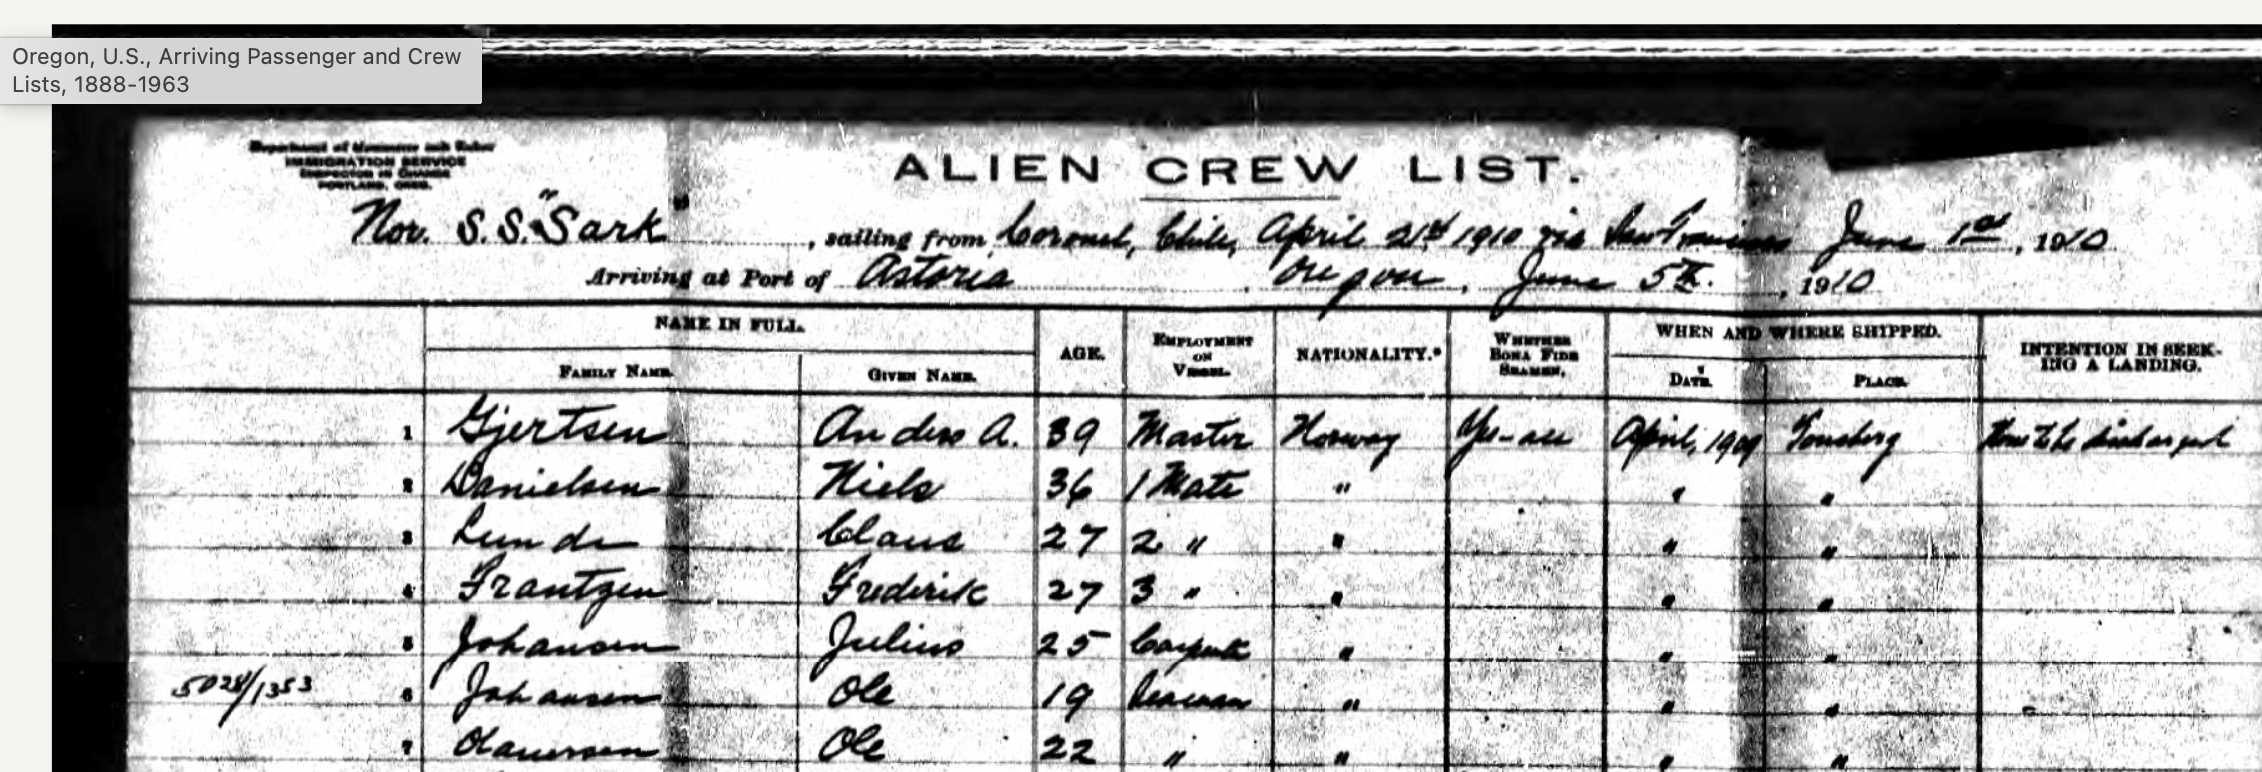 Oregon, U.S., Arriving Passenger and Crew
Lists, 1888-1963
Department of Commerce and Labor
IMMIGRATION SERVICE
INSPECTOR IN CHARGE
PORTLAND, OREG.
ALIEN CREW LIST.
Nor. S.S. "Sark" , sailing from Coronel, Chile, April 21st 1910 via San Francisco June 1st, 1910
Arriving at Port of Astoria Oregon, June 5th. , 1910
NAME IN FULL. AGE. EMPLOYMENT ON VESSEL. NATIONALITY.* WHETHER BONA FIDE SEAMEN. WHEN AND WHERE SHIPPED. INTENTION IN SEEKING A LANDING.
FAMILY NAME. GIVEN NAME. DATE. PLACE.
1 Gjertsen Anders A. 39 Master Norway Yes-all April, 1909 Tonsberg None to be discharged
2 Danielsen Niels 36 1 Mate " " "
3 Lunde Claus 27 2 " " " "
4 Frantzen Frederik 27 3 " " " "
5 Johansen Julius 25 Carpenter " " "
5028/1353 6 Johansen Ole 19 Seaman " " " "
7 Ole 22 " " " "